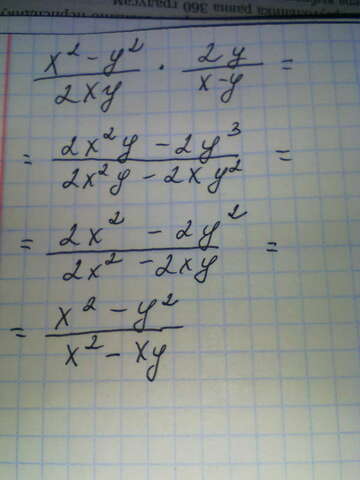 360 градусам
(x² - y²)/(2xy) · (2y)/(x-y) =
= (2x²y - 2y³)/(2x²y - 2xy²) =
= (2x² - 2y²)/(2x² - 2xy) =
= (x² - y²)/(x² - xy)